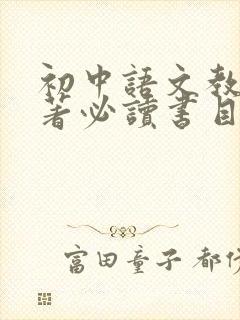 初中語文教
著必讀書目
富田童子 都